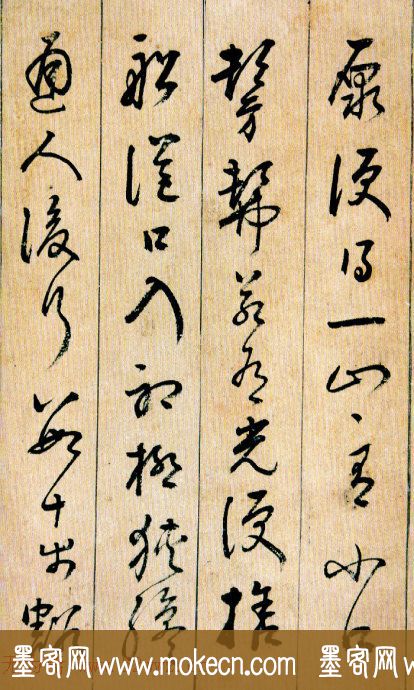 源便得一山〻有小口
髣髴若有光便捨
船從口入初極狹纔
通人復行數十步豁
墨客网 www.mokecn.com 墨客网